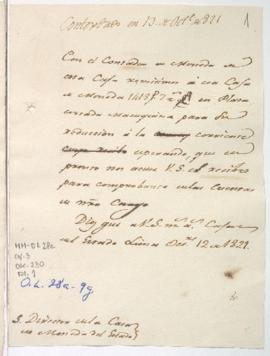 Contestado en 13 de Oct.e 821
1
Con el Contador de Moneda de
esta Casa remitimos à esa Casa
de Moneda 1413 en Plata
sellada Macuquina para su
reducción à la corriente
esperando, que de
pronto nos acuse V.S. el recibo
para comprobante de las Cuentas
de nro Cargo.
Dios gue à V.S. m.s a.s Casa
del Estado Lima Oct.e 12 de 1821.
MM-OL 28a
Caj. 3
Doc. 230
Fol. 1
O.L. 28a-9g
S. Director de la Casa
de Moneda del Estado